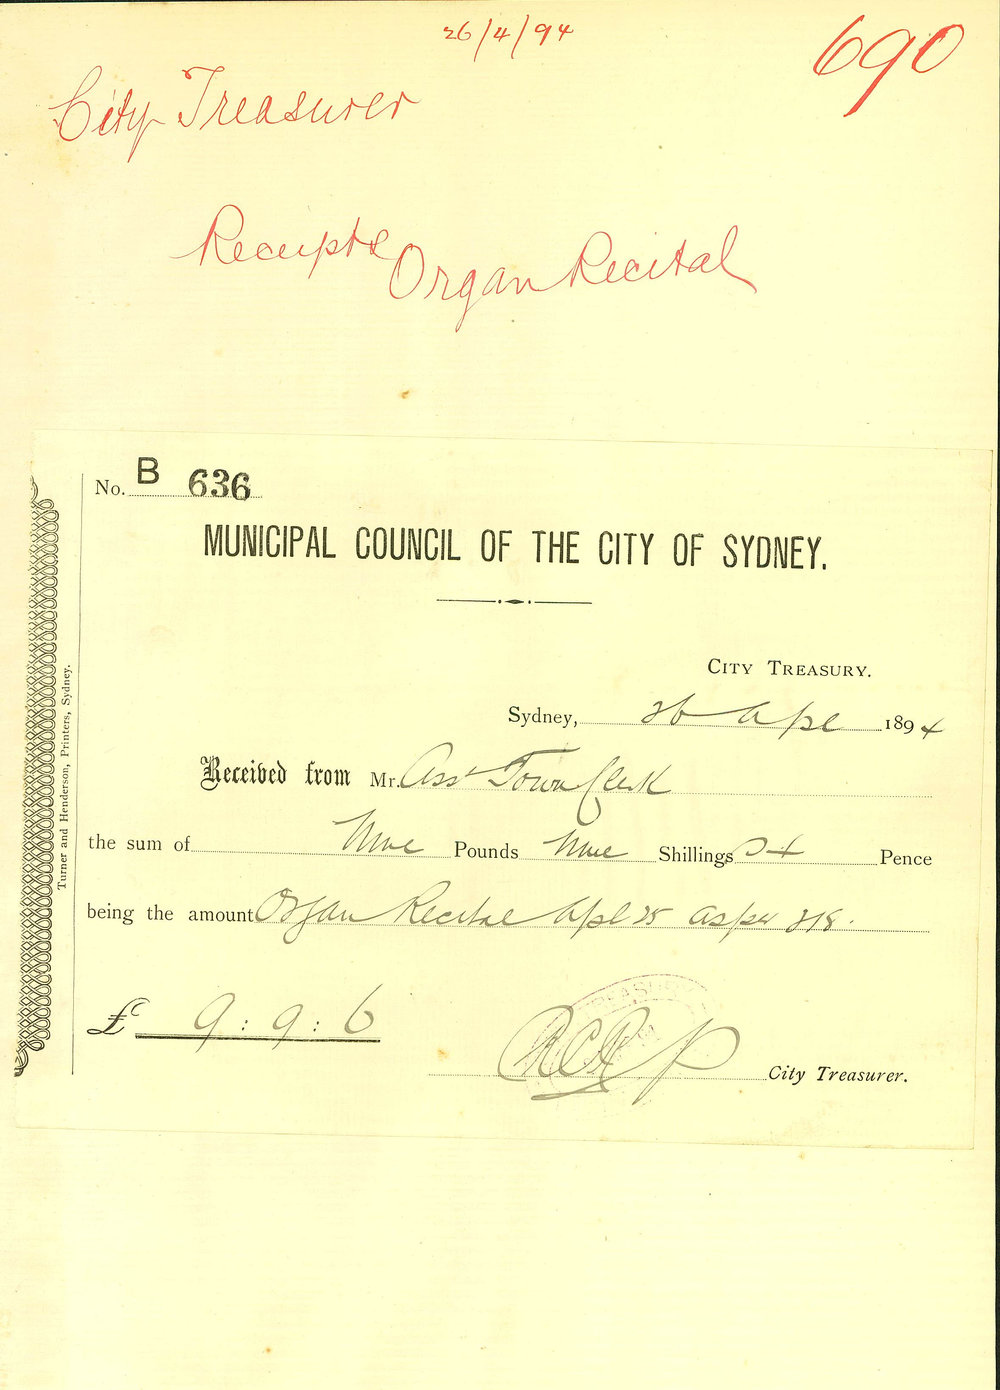 26/4/94
690
City Treasurer
Receipts Organ Recital
No. B 636
MUNICIPAL COUNCIL OF THE CITY OF SYDNEY.
CITY TREASURY.
Sydney, 26 Apl 1894
Received from Mr. Asst Town Clerk
the sum of Nine Pounds Nine Shillings Six Pence
being the amount Organ Recital Apl 25 as per 218.
£ 9 : 9 : 6
City Treasurer.
Turner and Henderson, Printers, Sydney.